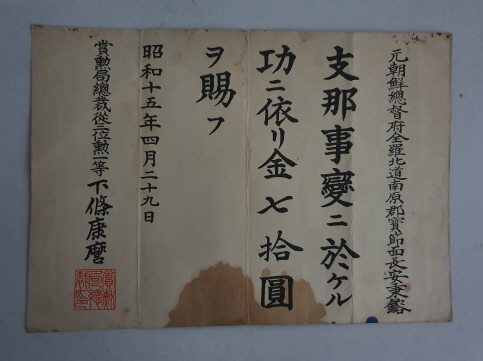 元朝鮮總督府全羅北道南原郡寶節面長安秉鎔
支那事變ニ於ケル
功ニ依リ金七拾圓
ヲ賜フ
昭和十五年四月二十九日
賞勲局總裁從三位勲一等下條康麿
賞勲局總裁印